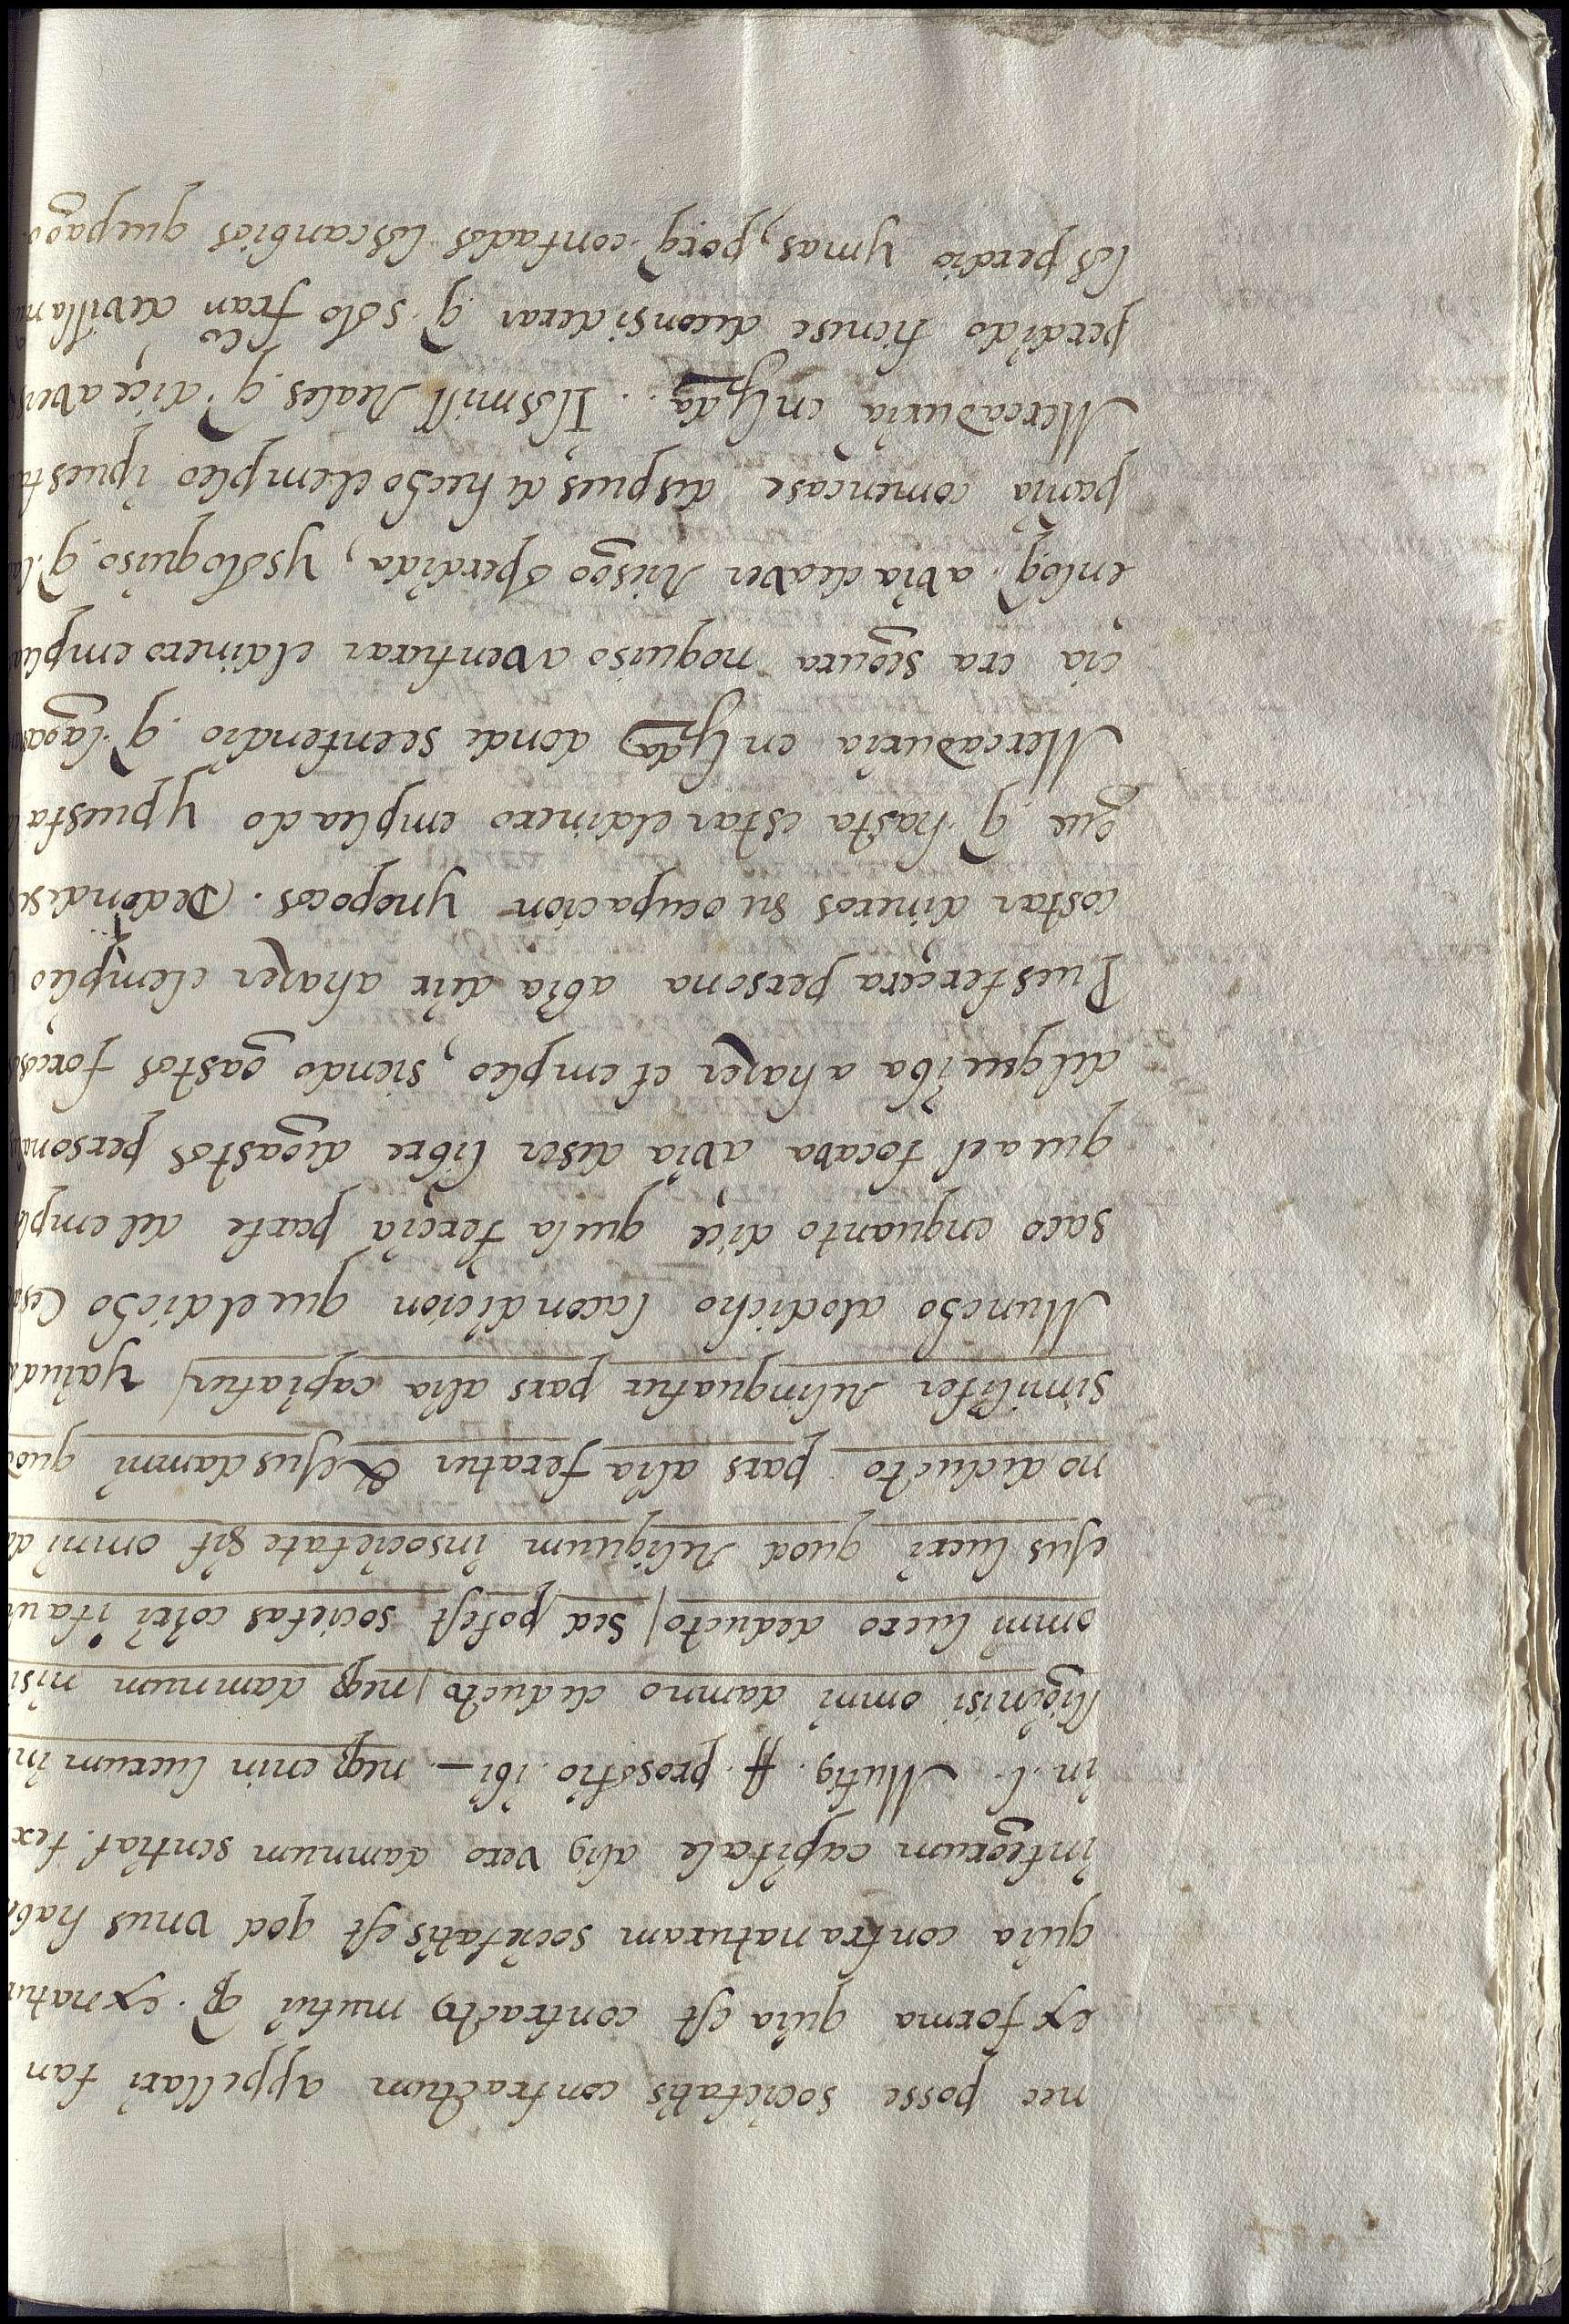 nec posse societatis contractum appellari tan
ex forma quia est contractus mutui q. ex natur
quia contra naturam societatis est qod vnus habe
integrum capitale aliq vero damnum sentiat. tex
in. l. Mutiq. ff. pro sotio. ibi — neqz enin lucrum in
lligi nisi omni damno deducto / neqz damnum nisi
omni lucro deducto / sed potest societas coiri ita ut
ejus lucri quod reliquum in societate sit omni da
no deducto pars alia feratur & ejus damni quod
similiter relinquatur pars alia capiatur / y aiuda
Muncho a lo dicho la condicion que el dicho Cesa
saco en quanto diçe que la terçia parte del emple
que a el tocava avia de ser libre de gastos persona
del que iba a hazer el empleo, siendo gastos forços
Pues tercera persona abia de ir a hazer el empleo
costar dineros su ocupacion y no pocos. De donde se
que q. hasta estar el dinero empleado y puesta l
Mercaduria en donde se entendio q. la gana
cia era segura no quiso aventurar el dinero emplea
en lo q. avia de aver risgo o perdida, y solo quiso q. la
pañia començase despues de hecho el empleo i puesta
Mercaduria en. Ilos mill Reales q. diçe aver
perdido tienese de considerar q. solo fran co de villan
los perdio y mas, porq. contados los canbios que pago